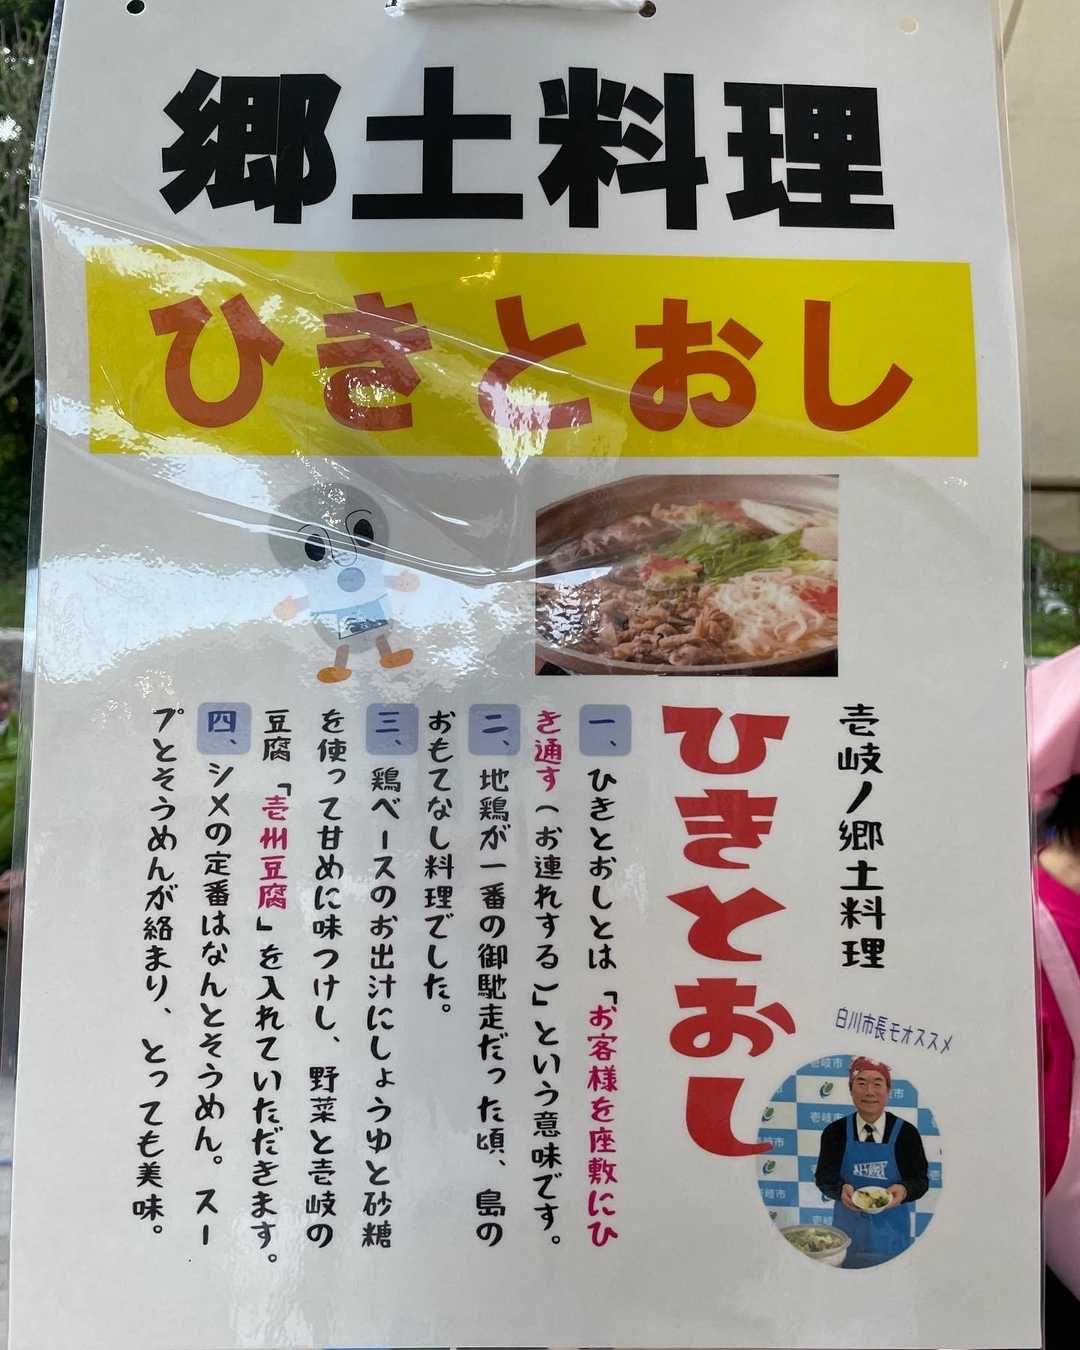 郷土料理
ひきとおし
壱岐ノ郷土料理
ひきとおし
一、ひきとおしとは「お客様を座敷にひ
き通す(お連れする)」という意味です。
二、地鶏が一番の御馳走だった頃、島の
おもてなし料理でした。
三、鶏ベースのお出汁にしょうゆと砂糖
を使って甘めに味つけし、野菜と壱岐の
豆腐「壱州豆腐」を入れていただきます。
四、シメの定番はなんとそうめん。スー
プとそうめんが絡まり、とっても美味。
白川市長モオススメ
壱岐市
岐市
壱岐市
壱岐市
壱岐市